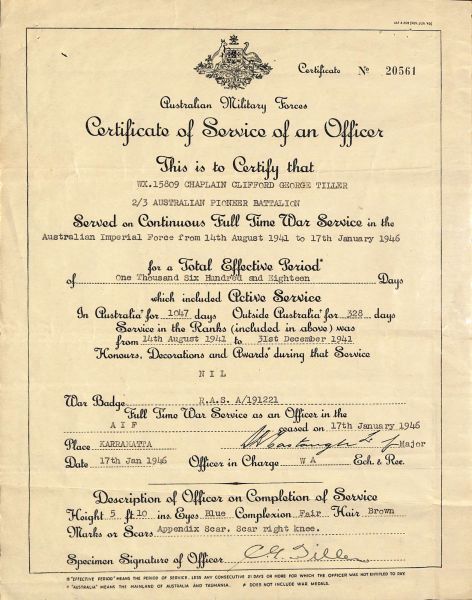 Certificate No 20561
Australian Military Forces
Certificate of Service of an Officer
This is to Certify that
WX.15809 CHAPLAIN CLIFFORD GEORGE TILLER
2/3 AUSTRALIAN PIONEER BATTALION
Served on Continuous Full Time War Service in the
Australian Imperial Force from 14th August 1941 to 17th January 1946
for a Total Effective Period*
of One Thousand Six Hundred and Eighteen Days
which included Active Service
In Australia† for 1047 days Outside Australia† for 328 days
Service in the Ranks (included in above) was
from 14th August 1941 to 31st December 1941
Honours, Decorations and Awards# during that Service
NIL
War Badge R.A.S. A/191221
Full Time War Service as an Officer in the
AIF ceased on 17th January 1946
Place KARRAKATTA Major
Date 17th Jan 1946 Officer in Charge WA Ech. & Rec.
Description of Officer on Completion of Service
Height 5 ft. 10 ins Eyes Blue Complexion Fair Hair Brown
Marks or Scars Appendix Scar. Scar right knee.
Specimen Signature of Officer C G Tiller
* "EFFECTIVE PERIOD" MEANS THE PERIOD OF SERVICE, LESS ANY CONSECUTIVE 21 DAYS OR MORE FOR WHICH THE OFFICER WAS NOT ENTITLED TO PAY.
† "AUSTRALIA" MEANS THE MAINLAND OF AUSTRALIA AND TASMANIA. # DOES NOT INCLUDE WAR MEDALS.